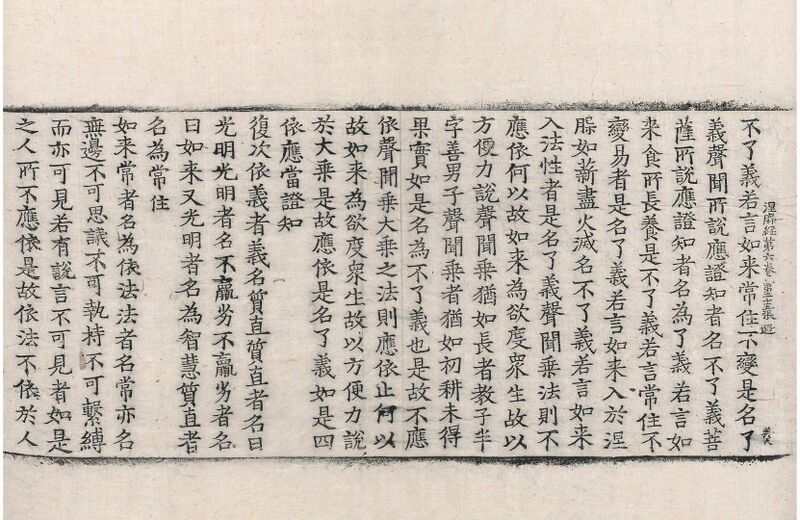 不了義若言如来常住不變是名了
涅槃经第六卷
義聲聞所說應證知者名不了義菩
薩所說應證知者名為了義若言如
来食所長養是不了義若言常住不
變易者是名了義若言如来入於涅
槃如薪盡火滅名不了義若言如来
入法性者是名了義聲聞乗法則不
應依何以故如来為欲度衆生故以
方便力說聲聞乗猶如長者教子半
字善男子聲聞乗者猶如初耕未得
果實如是名為不了義也是故不應
依聲聞乗大乗之法則應依止何以
故如来為欲度衆生故以方便力說
於大乗是故應依是名了義如是四
依應當證知
復次依義者義名質直質直者名曰
光明光明者名不羸劣不羸劣者名
曰如来又光明者名為智慧質直者
名為常住
如来常者名為依法法者名常亦名
無邊不可思議不可執持不可繫縛
而亦可見若有說言不可見者如是
之人所不應依是故依法不依於人